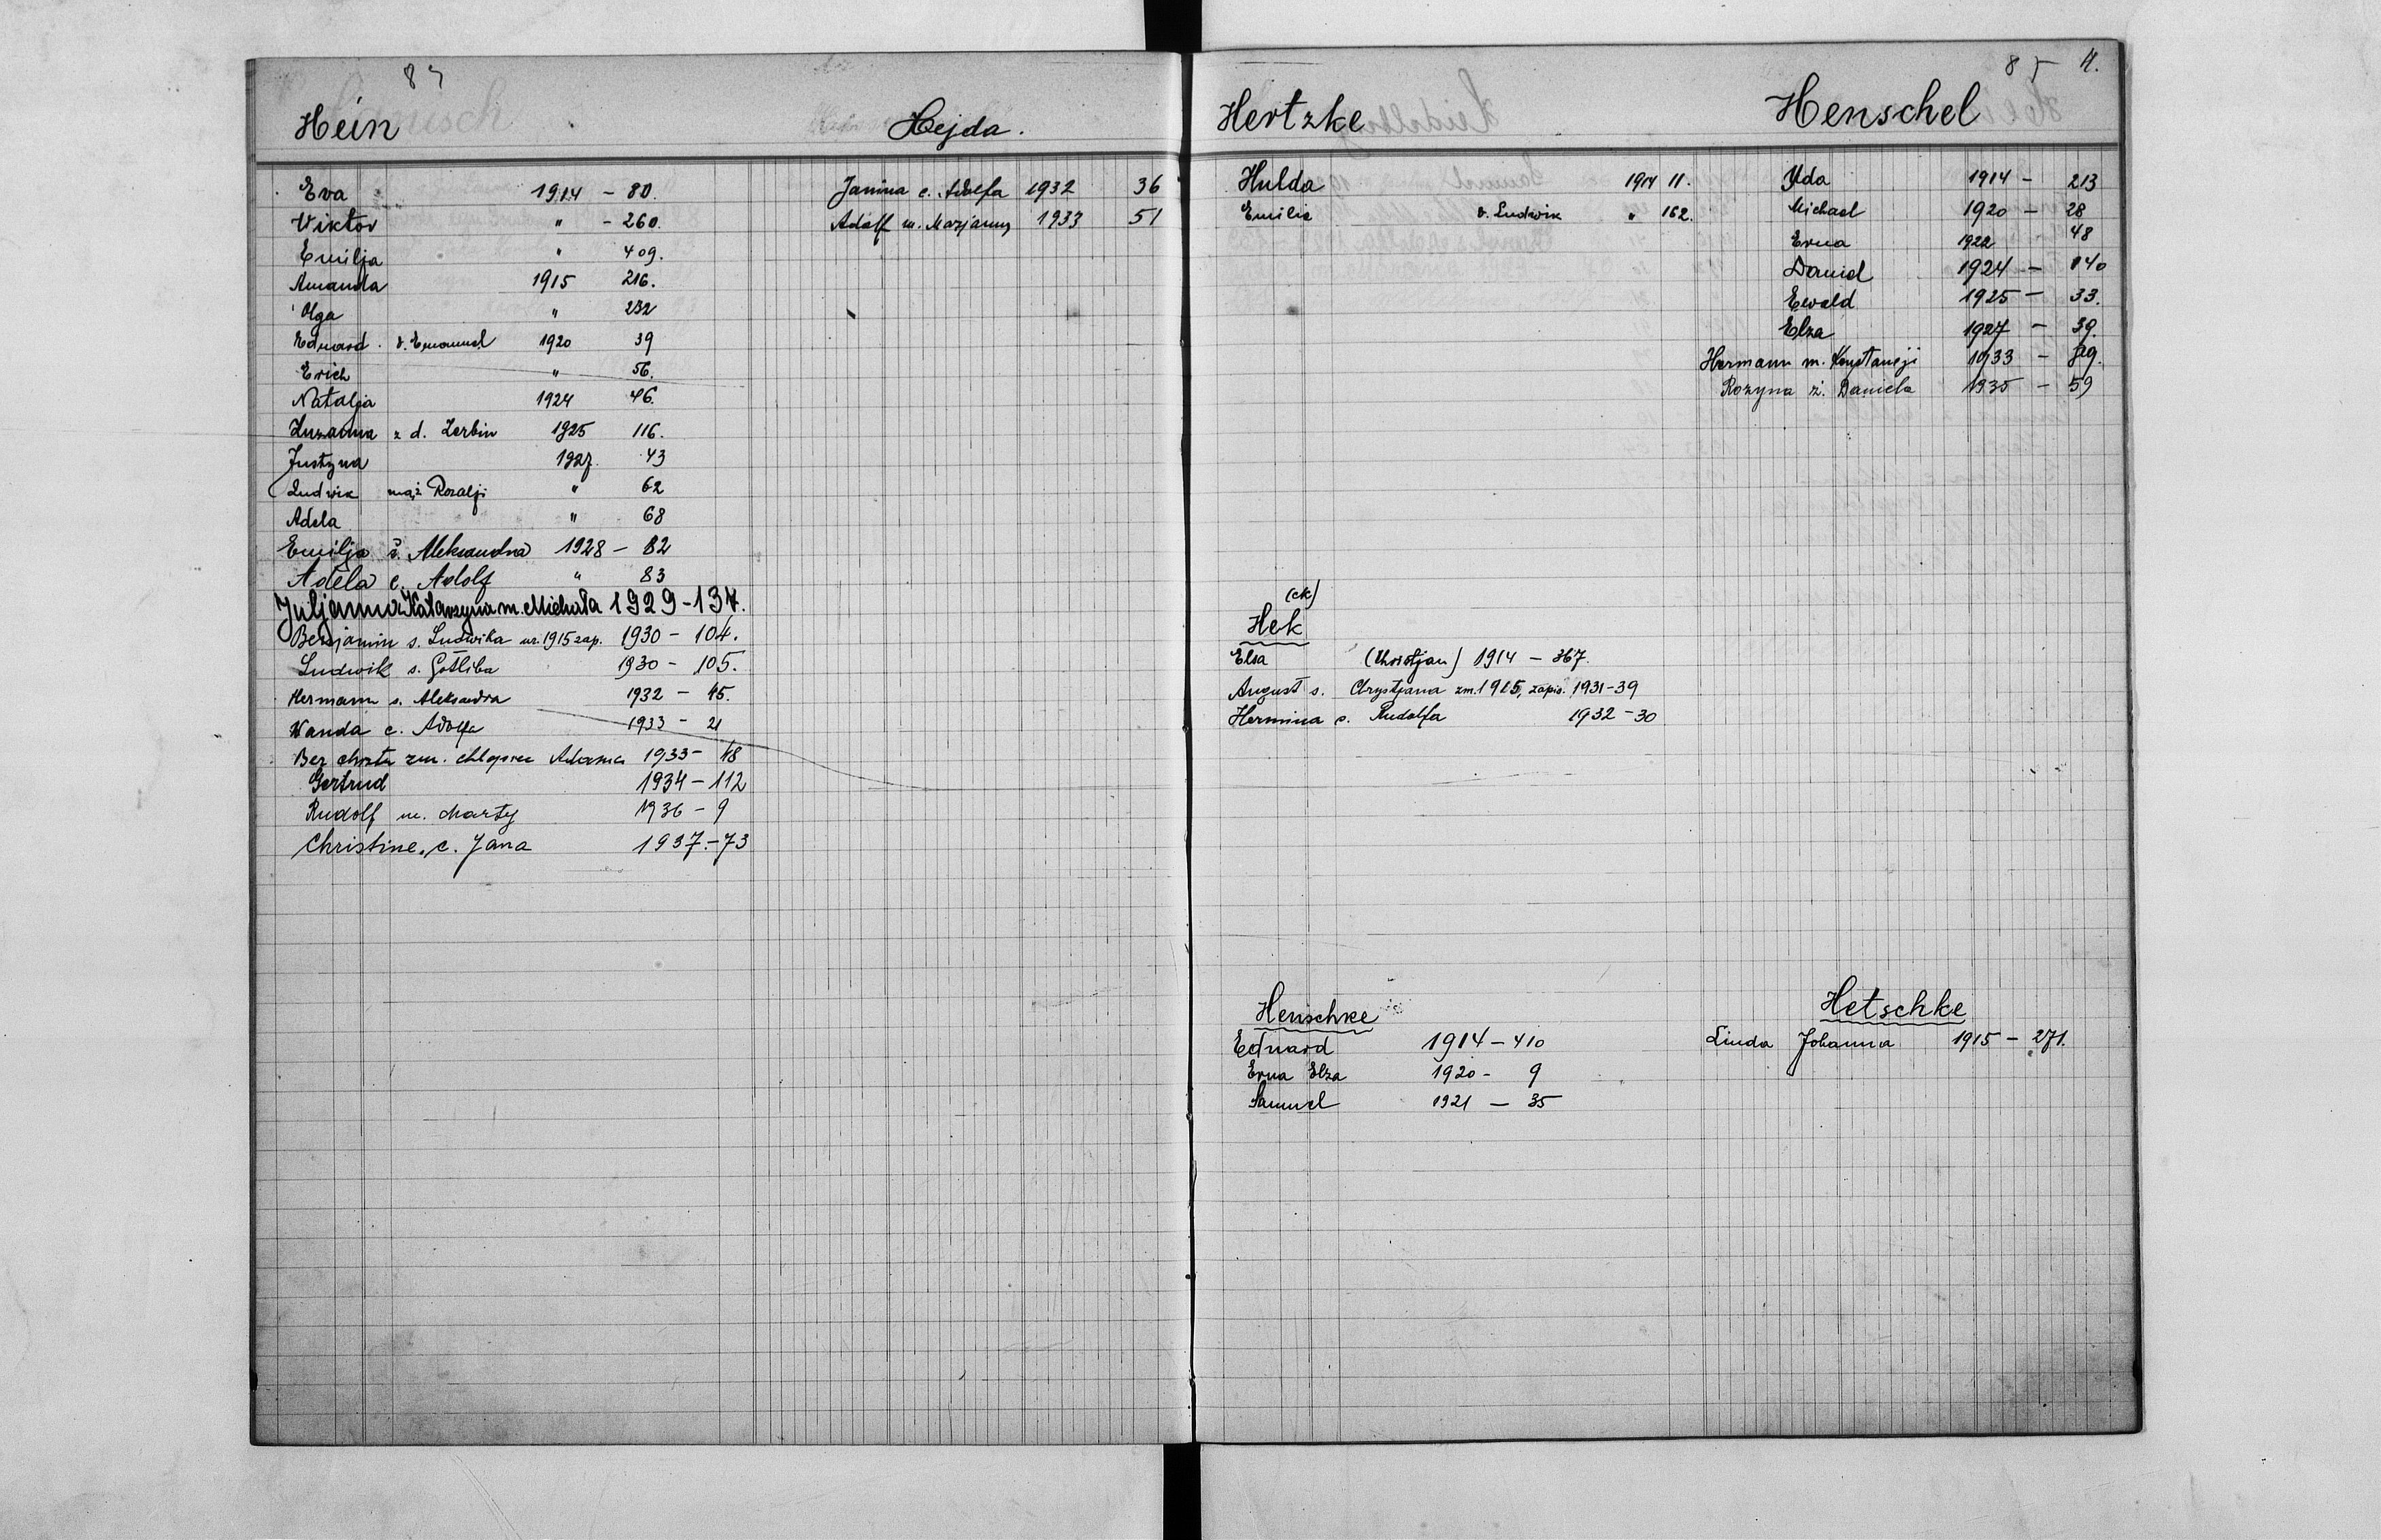 84
Hein
Eva 1914 - 80.
Wiktor " - 260.
Emilja " 409.
Amanda 1915 216.
Olga " 232
Eduard. v. Emanuel 1920 39
Erich " 56.
Natalja 1924 46.
Zuzanna z d. Zerbin 1925 116.
Justyna 1927. 43
Ludwik mąż Rozalji " 62
Adela " 68
Emilja ż. Aleksandra 1928 - 82
Adela c. Adolf " 83
Juljanna Katarzyna m. Michała 1929 - 134.
Benjamin s. Ludwika ur. 1915 zap. 1930 - 104.
Ludwik s. Gotliba 1930 - 105.
Hermann s. Aleksandra 1932 - 45.
Wanda c. Adolfa 1933 - 21
Bez chrztu zm. chłopiec Adama 1933 - 48
Gertrud 1934 - 112
Rudolf m. Marty 1936 - 9
Christine, c. Jana 1937. - 73
Hejda.
Janina c. Adolfa 1932 36
Adolf m. Marjanny 1933 51
85 H.
Hertzke
Hulda 1914 11.
Emilie v. Ludwik " 162.
Henschel
Yda 1914 - 213
Michael 1920 - 28
Erna 1922 48
Daniel 1924 - 140
Ewald 1925 - 33.
Elza 1927 - 39.
Hermann m. Konstancji 1933 -
Rozyna ż. Daniela 1935 - 59
(ck)
Hek
Elsa (Christjan) 1914 - 367.
August s. Chrystjana zm. 1915, zapis. 1931 - 39
Hermina c. Rudolfa 1932 - 30
Henschke
Eduard 1914 - 410
Erna Elza 1920 - 9
Samuel 1921 - 35
Hetschke
Linda Johanna 1915 - 271.